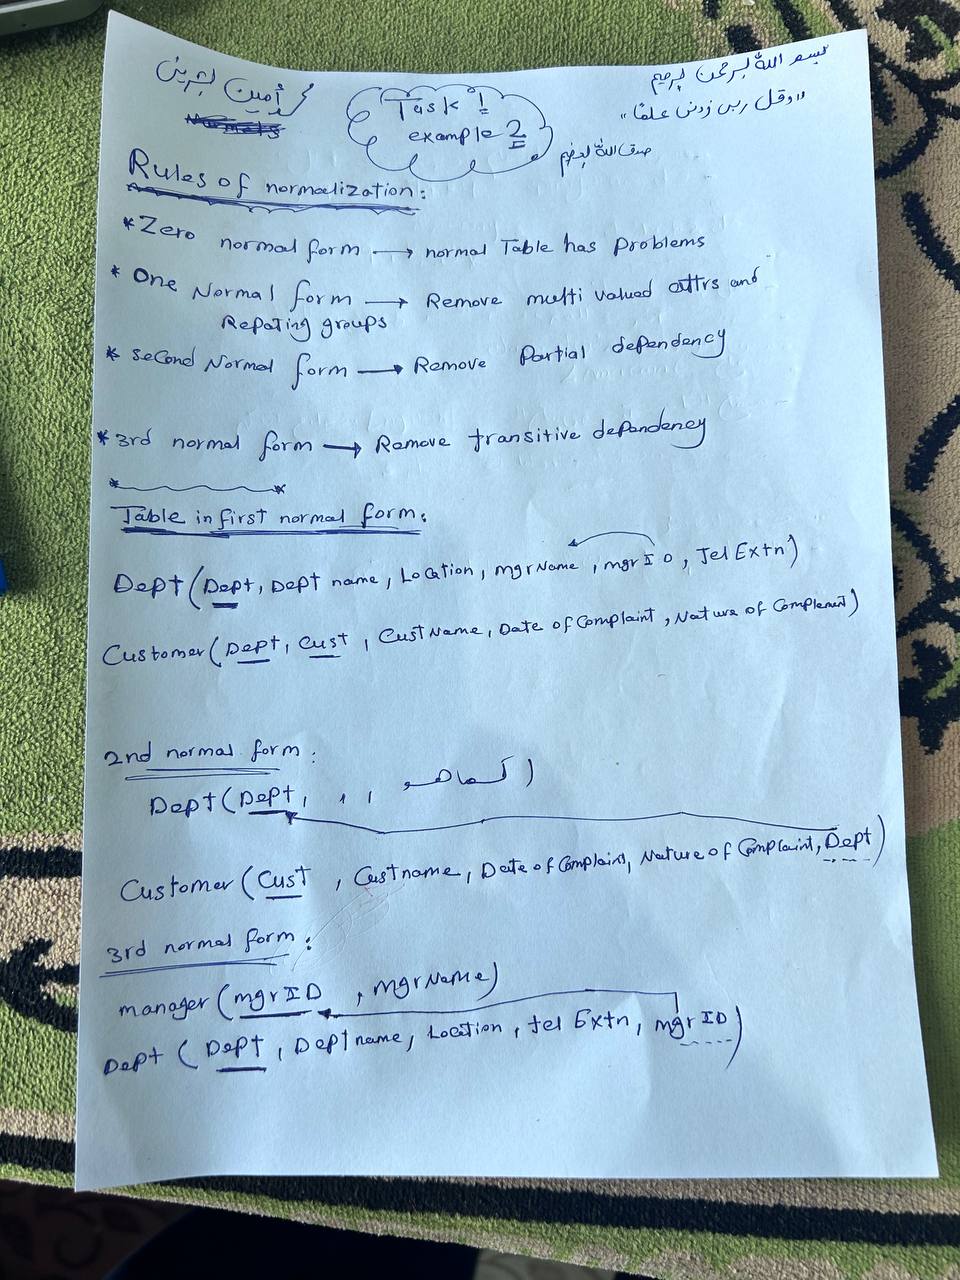 بسم الله الرحمن الرحيم
"وقل ربي زدني علما"
صدق الله العظيم
محمد أمين
Task 1
example 2
Rules of normalization:
*Zero normal form → normal Table has Problems
* One Normal form → Remove multi valued attrs and
Repating groups
* second Normal form → Remove Partial dependency
* 3rd normal form → Remove transitive dependency
Table in first normal form:
Dept (Dept, Dept name, Location, mgrName, mgrID, Tel Extn)
Customer (Dept, Cust, CustName, Date of Complaint, Nature of Complement)
2nd normal form:
Dept (Dept, , , كما هو)
Customer (Cust, Custname, Date of Complaint, Nature of Complaint, Dept)
3rd normal form:
manager (mgrID, mgrName)
Dept (Dept, Deptname, Location, tel Extn, mgrID)